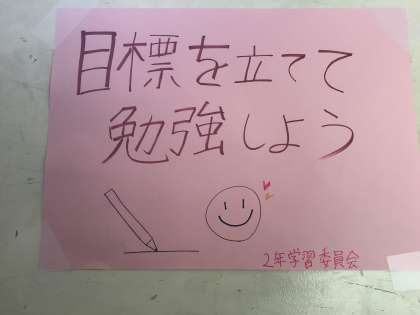 目標を立てて
勉強しよう
2年学習委員会